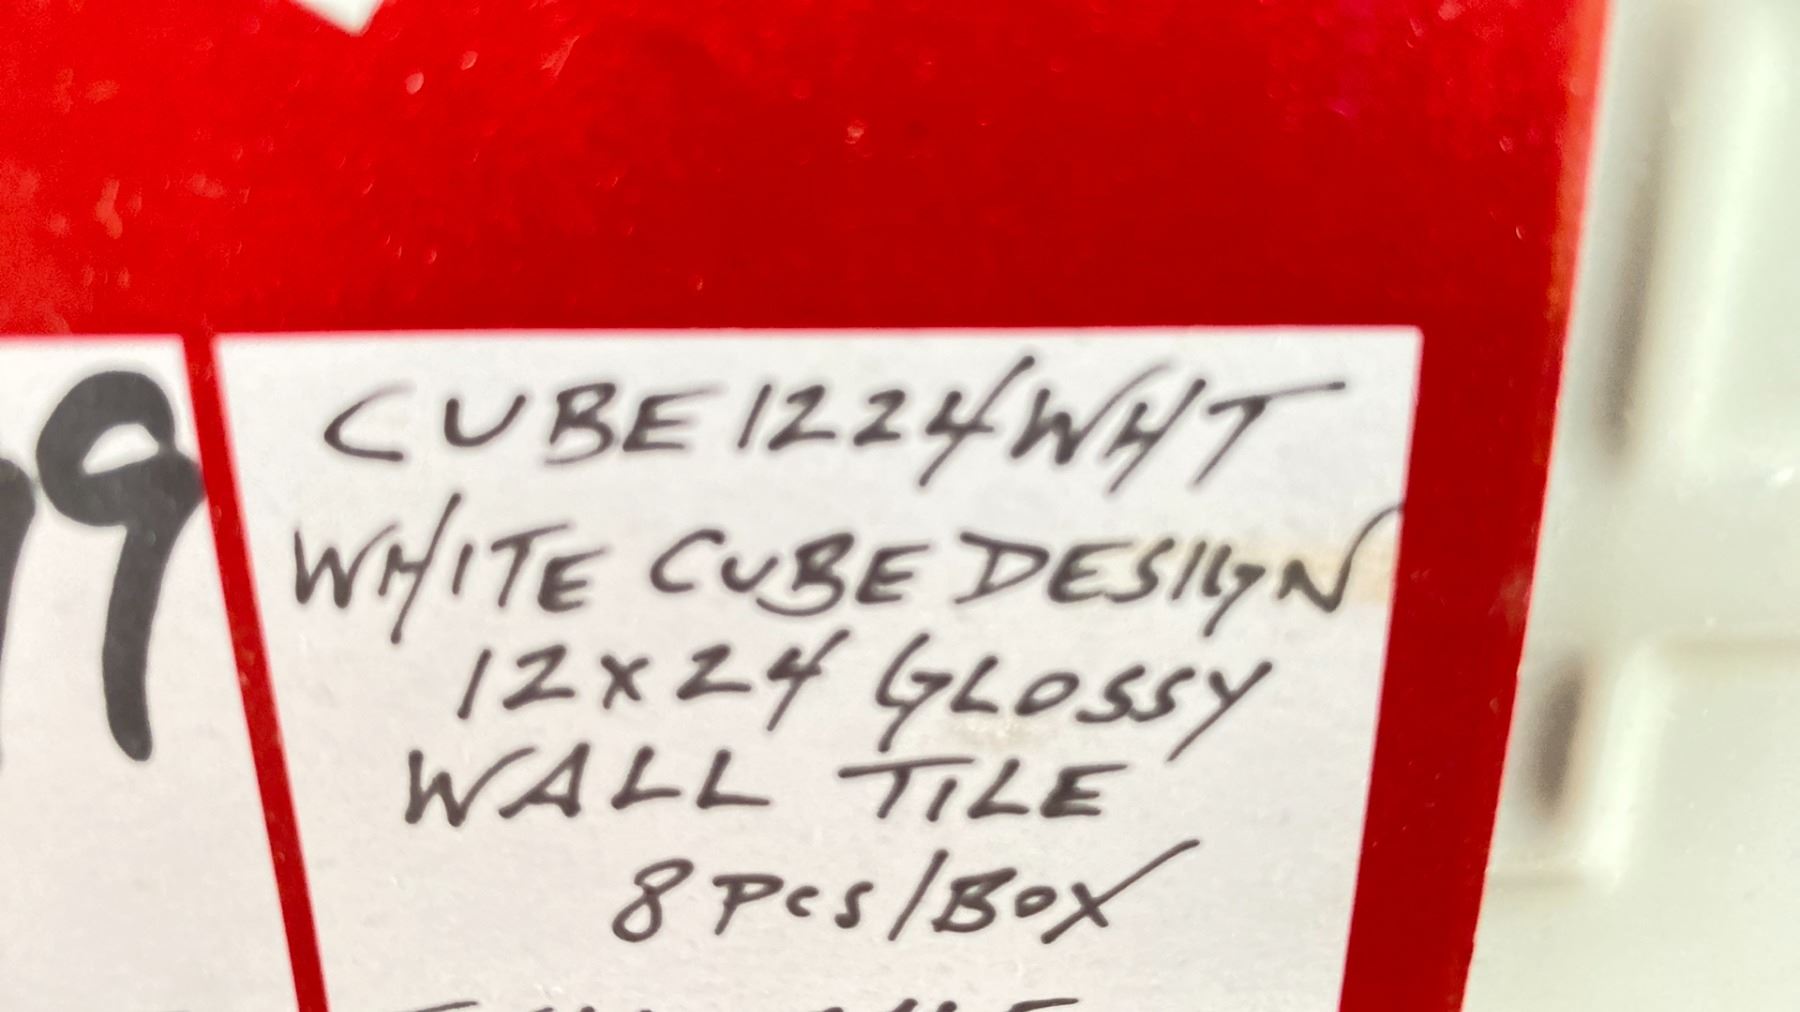 99
CUBE1224WHT
WHITE CUBE DESIGN
12x24 GLOSSY
WALL TILE
8 Pcs/Box